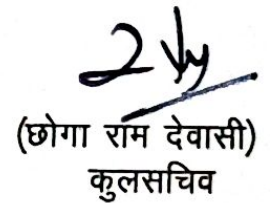 (छोगा राम देवासी)
कुलसचिव